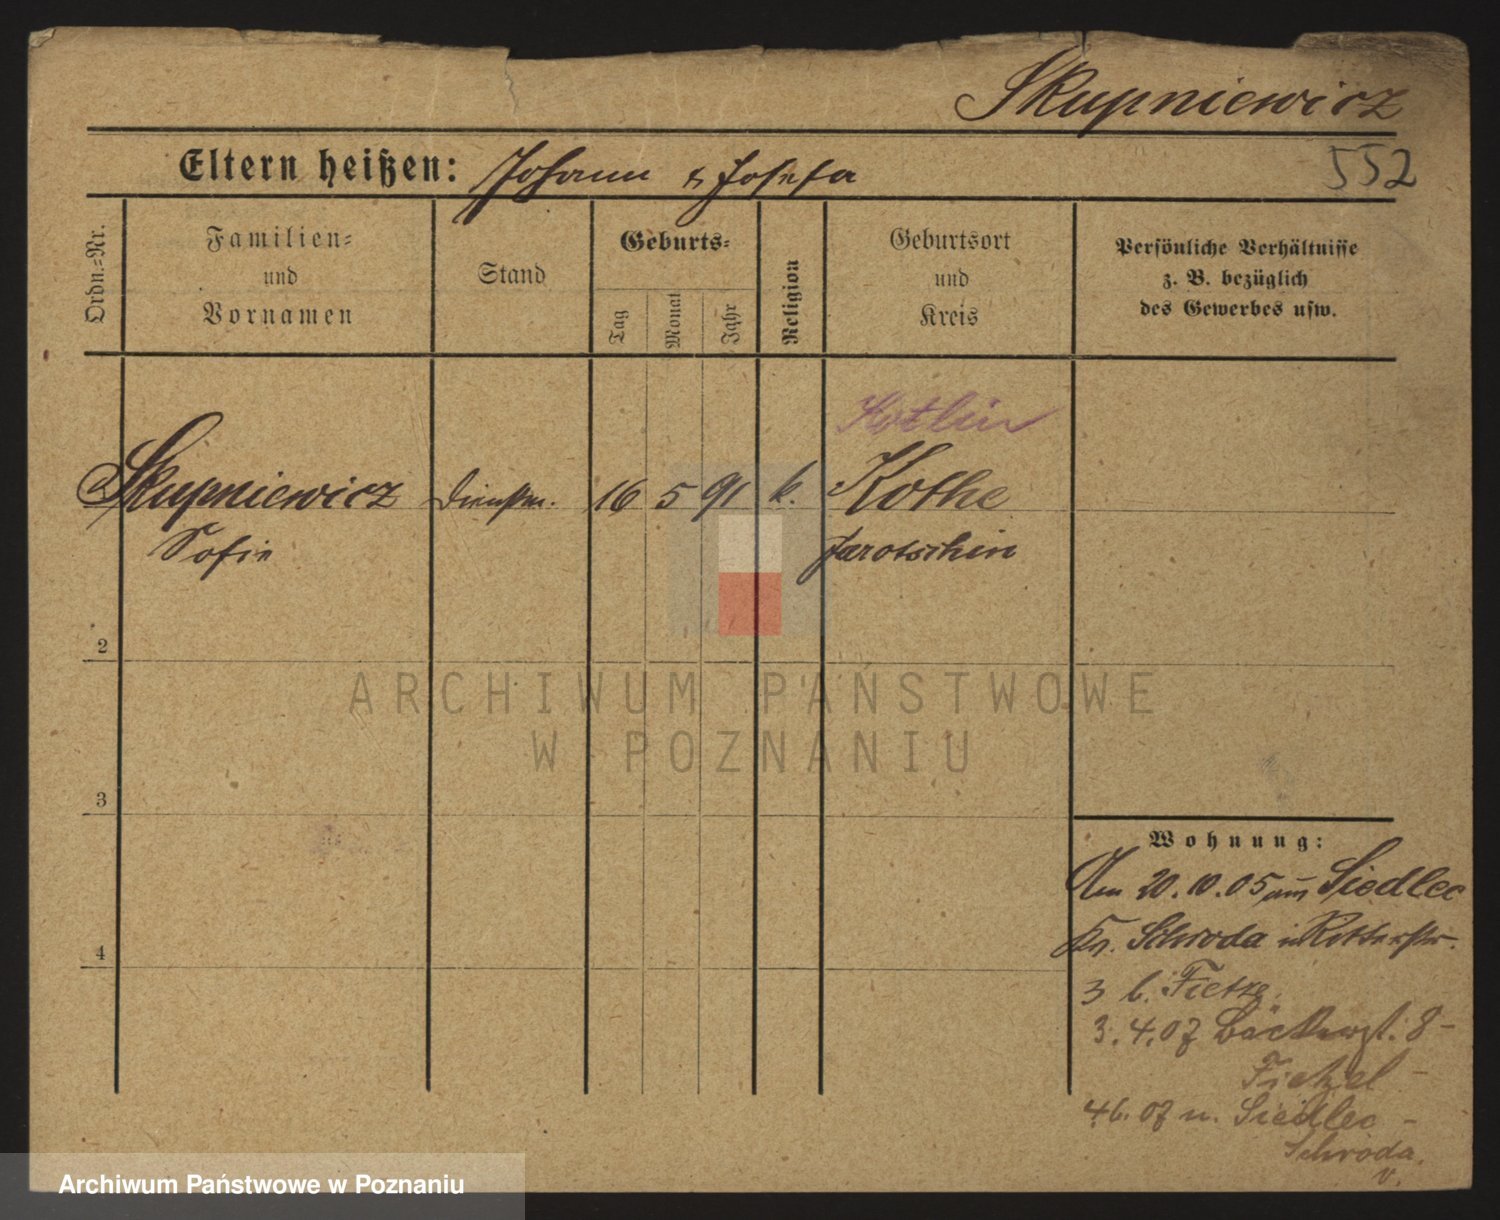 Skupniewicz
Eltern heißen: Johann & Josefa
552
Ordn.=Nr.
Familien=
und
Vornamen
Stand
Geburts=
Tag
Monat
Jahr
Religion
Geburtsort
und
Kreis
Persönliche Verhältnisse
z. B. bezüglich
des Gewerbes usw.
Kotlin
Skupniewicz Dienstm. 16 5 91 k. Kothe
Sofie Jarotschin
2
ARCHIWUM PAŃSTWOWE
W POZNANIU
3
Wohnung:
Am 20.10.05 aus Siedlec
Kr. Schroda in Ritterstr.
3 b. Fietze.
3.4.07 Bäckerst. 8 -
Fietzel -
4.6.07 n. Siedlec -
Schroda
v.
4
Archiwum Państwowe w Poznaniu